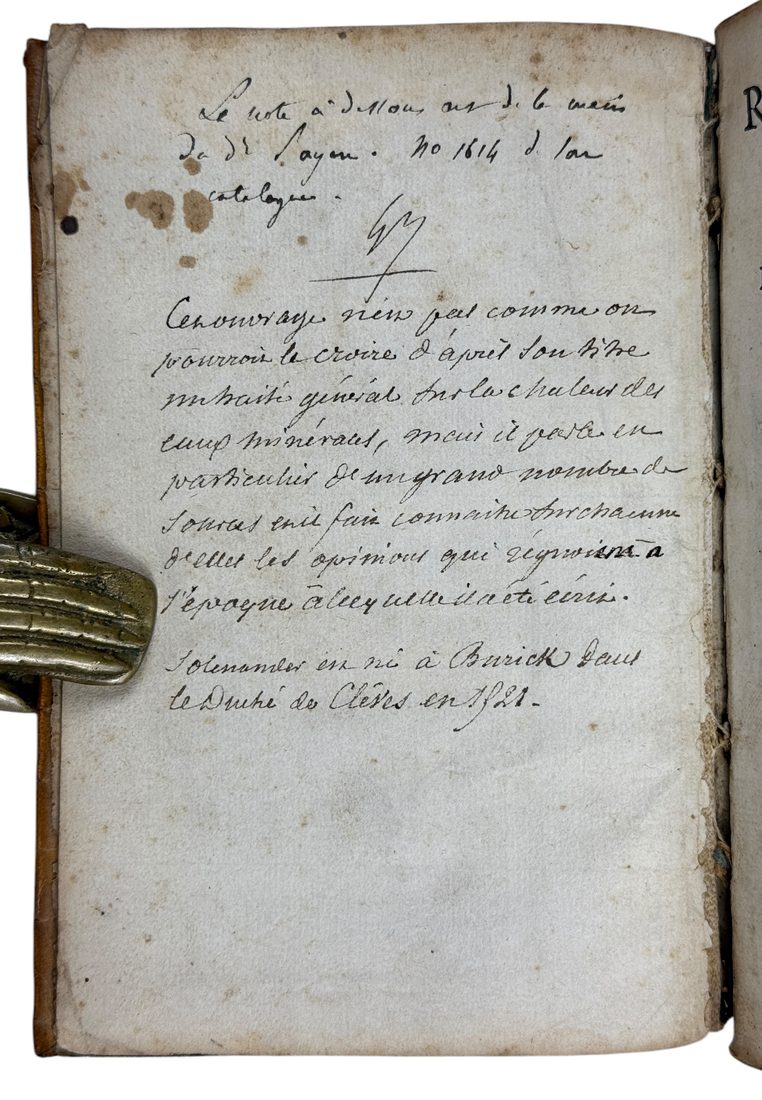 La note ci dessous est de la main
du dr Payen. No 1614 d. son
catalogue.
Cet ouvrage n'est pas comme on
pourroit le croire d'après son titre
un traité général sur la chaleur des
eaux minérales, mais il parle en
particulier de un grand nombre de
sources et il fait connaitre sur chacune
d'elles les opinions qui régnoient à
l'époque à laquelle il a été écrit.
Solenander est né à Burick dans
le Duché de Clèves en 1521.
R